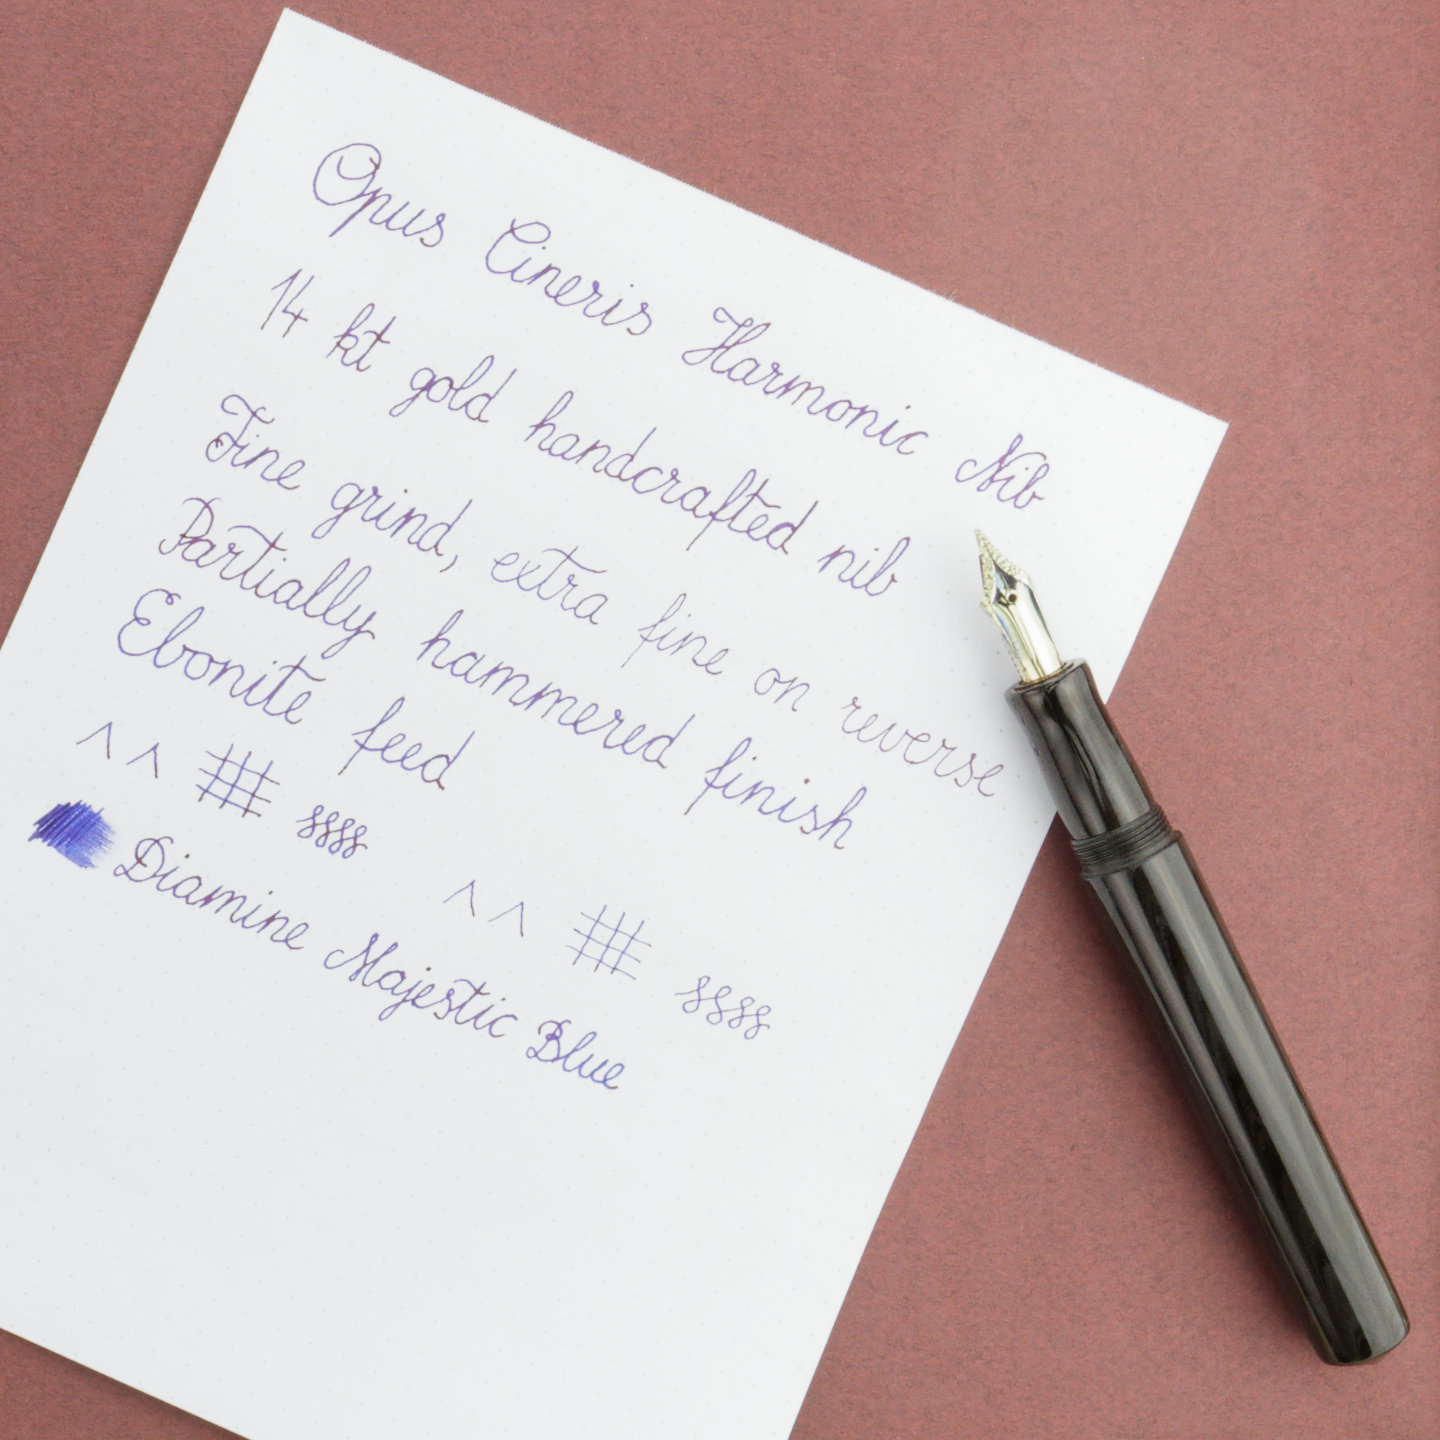 Opus Cineris Harmonic Nib
14 kt gold handcrafted nib
Fine grind, extra fine on reverse
Partially hammered finish
Ebonite feed
Diamine Majestic Blue